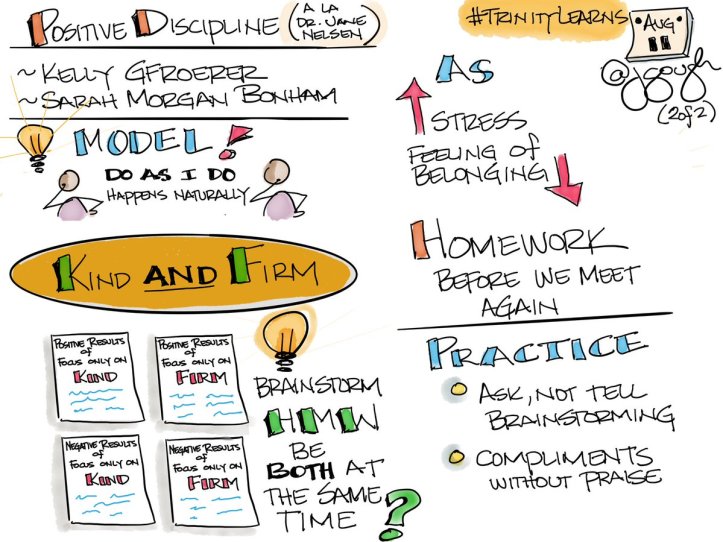 POSITIVE DISCIPLINE
(A LA
DR. JANE
NELSEN)
~KELLY GFROERER
~SARAH MORGAN BONHAM
MODEL!
DO AS I DO
HAPPENS NATURALLY
KIND AND FIRM
POSITIVE RESULTS
of
FOCUS ONLY ON
KIND
POSITIVE RESULTS
of
FOCUS ONLY ON
FIRM
NEGATIVE RESULTS
of
FOCUS ONLY ON
KIND
NEGATIVE RESULTS
of
FOCUS ONLY ON
FIRM
BRAINSTORM
HMW
BE
BOTH AT
THE SAME
TIME?
#TRINITYLEARNS
AUG
11
@jgough
(2of2)
AS
STRESS
FEELING of
BELONGING
HOMEWORK
BEFORE WE MEET
AGAIN
PRACTICE
ASK, NOT TELL
BRAINSTORMING
COMPLIMENTS
WITHOUT PRAISE